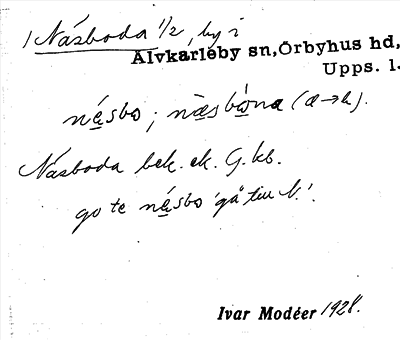 Násboda 1/2, by i
Älvkarleby sn, Örbyhus hd,
Upps. l.
nésbo; næsbóna (a→h).
Násboda bek. ek. G. kb.
go te nésbo 'gå till N.'.
Ivar Modéer 1928.